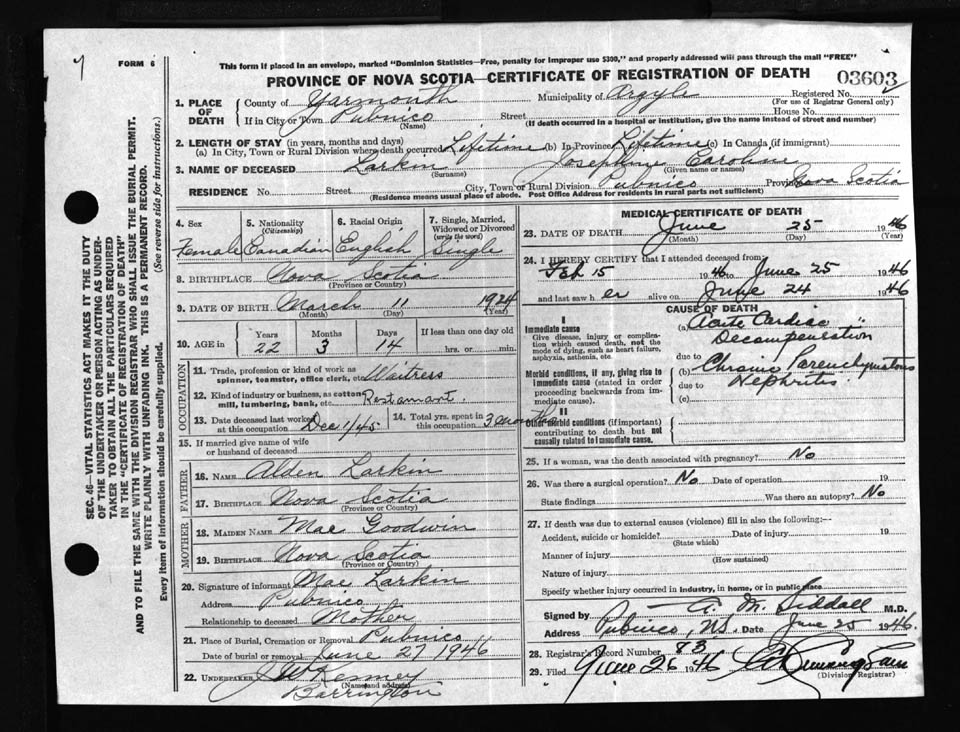 FORM 6
This form if placed in an envelope, marked "Dominion Statistics—Free, penalty for improper use $300," and properly addressed will pass through the mail "FREE"
PROVINCE OF NOVA SCOTIA—CERTIFICATE OF REGISTRATION OF DEATH
03603
1. PLACE OF DEATH
County of Yarmouth Municipality of Argyle Registered No.
(For use of Registrar General only)
If in City or Town Pubnico Street House No.
(Name) (If death occurred in a hospital or institution, give the name instead of street and number)
2. LENGTH OF STAY (in years, months and days)
(a) In City, Town or Rural Division where death occurred Lifetime (b) In Province Lifetime (c) In Canada (if immigrant)
3. NAME OF DECEASED Larkin Josephine Caroline
(Surname) (Given name or names)
RESIDENCE No. Street City, Town or Rural Division Pubnico Province Nova Scotia
(Residence means usual place of abode. Post Office Address for residents in rural parts not sufficient)
4. Sex Female
5. Nationality (Citizenship) Canadian
6. Racial Origin English
7. Single, Married, Widowed or Divorced (write the word) Single
8. BIRTHPLACE Nova Scotia
(Province or Country)
9. DATE OF BIRTH March 11 1924
(Month) (Day) (Year)
10. AGE in Years 22 Months 3 Days 14 If less than one day old hrs. or min.
OCCUPATION
11. Trade, profession or kind of work as spinner, teamster, office clerk, etc. Waitress
12. Kind of industry or business, as cotton mill, lumbering, bank, etc. Restaurant.
13. Date deceased last worked at this occupation Dec 1/45
14. Total yrs. spent in this occupation 3 months
15. If married give name of wife or husband of deceased
FATHER
16. NAME Alden Larkin
17. BIRTHPLACE Nova Scotia
(Province or Country)
MOTHER
18. MAIDEN NAME Mae Goodwin
19. BIRTHPLACE Nova Scotia
(Province or Country)
20. Signature of informant Mae Larkin
Address Pubnico
Relationship to deceased Mother
21. Place of Burial, Cremation or Removal Pubnico
Date of burial or removal June 27 1946
22. UNDERTAKER Kenney
(Name and address)
Barrington
MEDICAL CERTIFICATE OF DEATH
23. DATE OF DEATH June 25 1946
(Month) (Day) (Year)
24. I HEREBY CERTIFY that I attended deceased from:
Feb 15 1946 to June 25 1946
and last saw her alive on June 24 1946
CAUSE OF DEATH
I
Immediate cause
Give disease, injury or complication which caused death, not the mode of dying, such as heart failure, asphyxia, asthenia, etc.
(a) Acute Cardiac Decompensation
due to
Morbid conditions, if any, giving rise to immediate cause (stated in order proceeding backwards from immediate cause).
(b) Chronic Parenchymatous Nephritis
due to
(c)
II
Other morbid conditions (if important) contributing to death but not causally related to immediate cause.
25. If a woman, was the death associated with pregnancy? No
26. Was there a surgical operation? No Date of operation 19
State findings Was there an autopsy? No
27. If death was due to external causes (violence) fill in also the following:—
Accident, suicide or homicide? Date of injury 19
(State which)
Manner of injury
(How sustained)
Nature of injury
Specify whether injury occurred in industry, in home, or in public place
Signed by A. M. Siddall M.D.
Address Pubnico, N.S. Date June 25 1946.
28. Registrar's Record Number 83
29. Filed June 26 1946
(Division Registrar)
SEC. 46—VITAL STATISTICS ACT MAKES IT THE DUTY
OF THE UNDERTAKER OR PERSON ACTING AS UNDER-
TAKER TO OBTAIN ALL THE PARTICULARS REQUIRED
IN THE "CERTIFICATE OF REGISTRATION OF DEATH"
AND TO FILE THE SAME WITH THE DIVISION REGISTRAR WHO SHALL ISSUE THE BURIAL PERMIT.
WRITE PLAINLY WITH UNFADING INK. THIS IS A PERMANENT RECORD.
Every item of information should be carefully supplied. (See reverse side for instructions.)